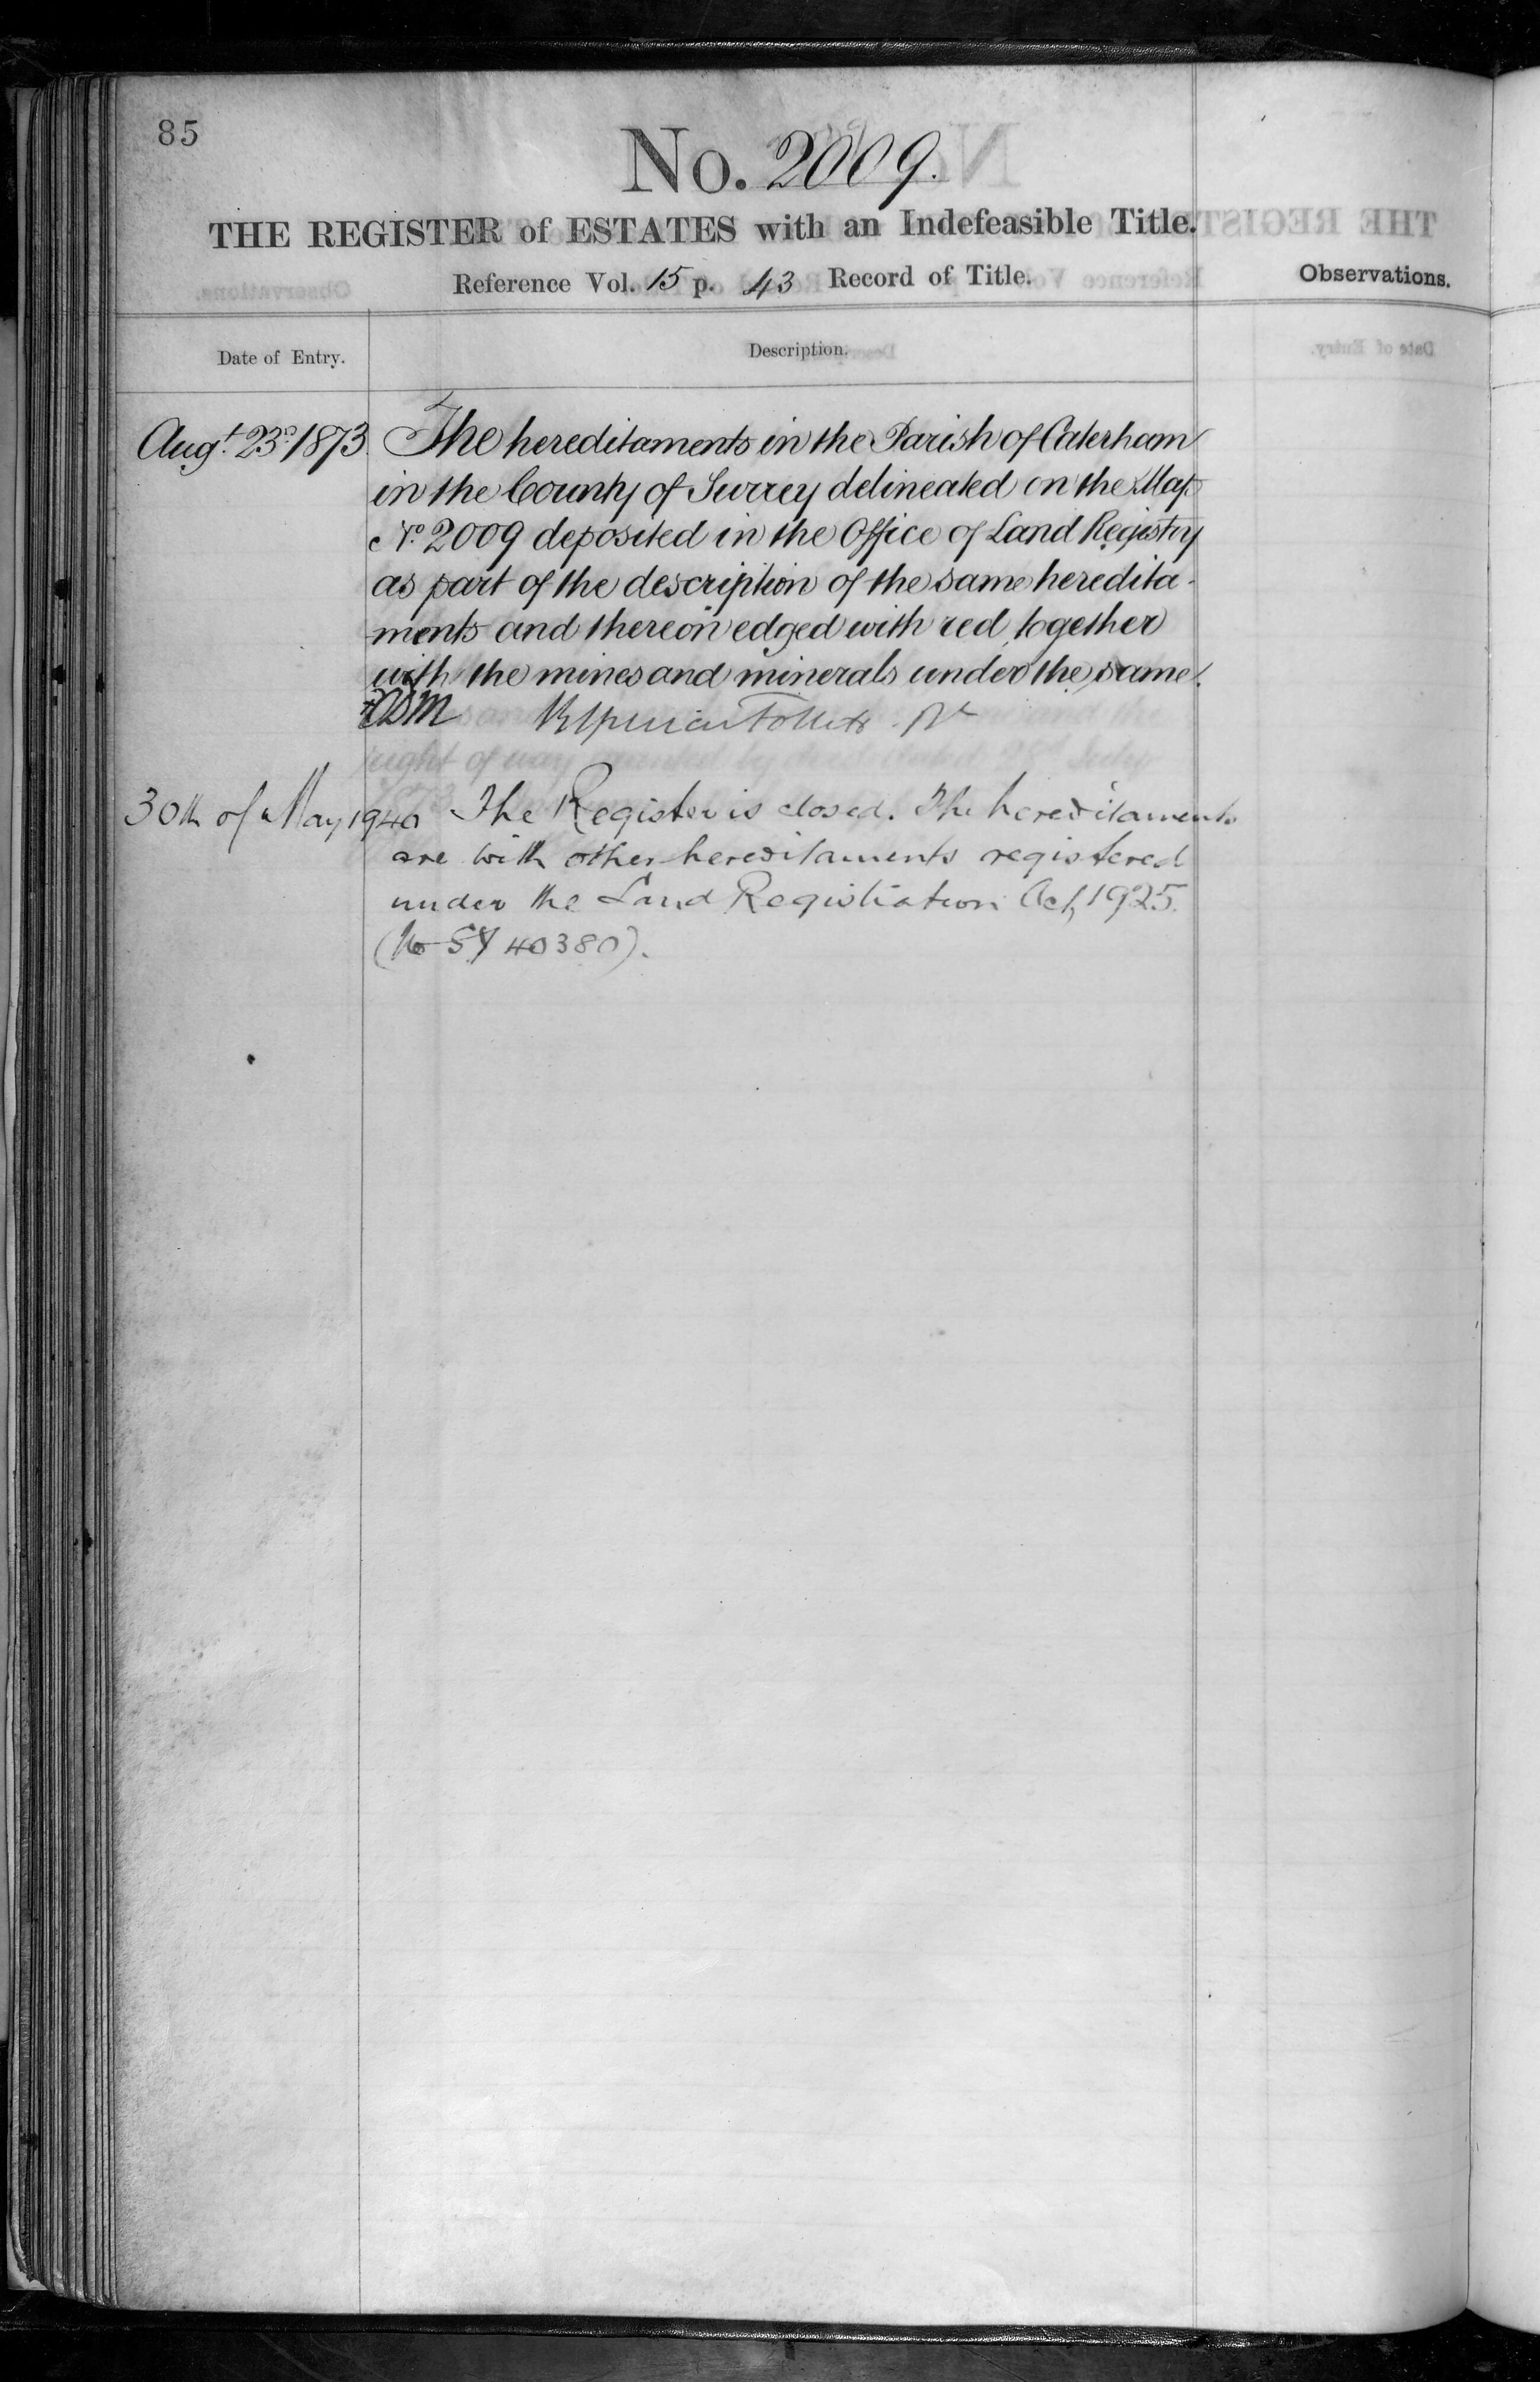 85
No. 2009.
THE REGISTER of ESTATES with an Indefeasible Title.
Reference Vol. 15 p. 43 Record of Title.
Observations.
Date of Entry.
Description.
Augt. 23d. 1873. The hereditaments in the Parish of Caterham
in the County of Surrey delineated on the Map
No. 2009 deposited in the Office of Land Registry
as part of the description of the same heredita-
ments and thereon edged with red together
with the mines and minerals under the same.
30th of May 1940 The Register is closed. The hereditaments
are with other hereditaments registered
under the Land Registration Act, 1925.
(No SY 40380).